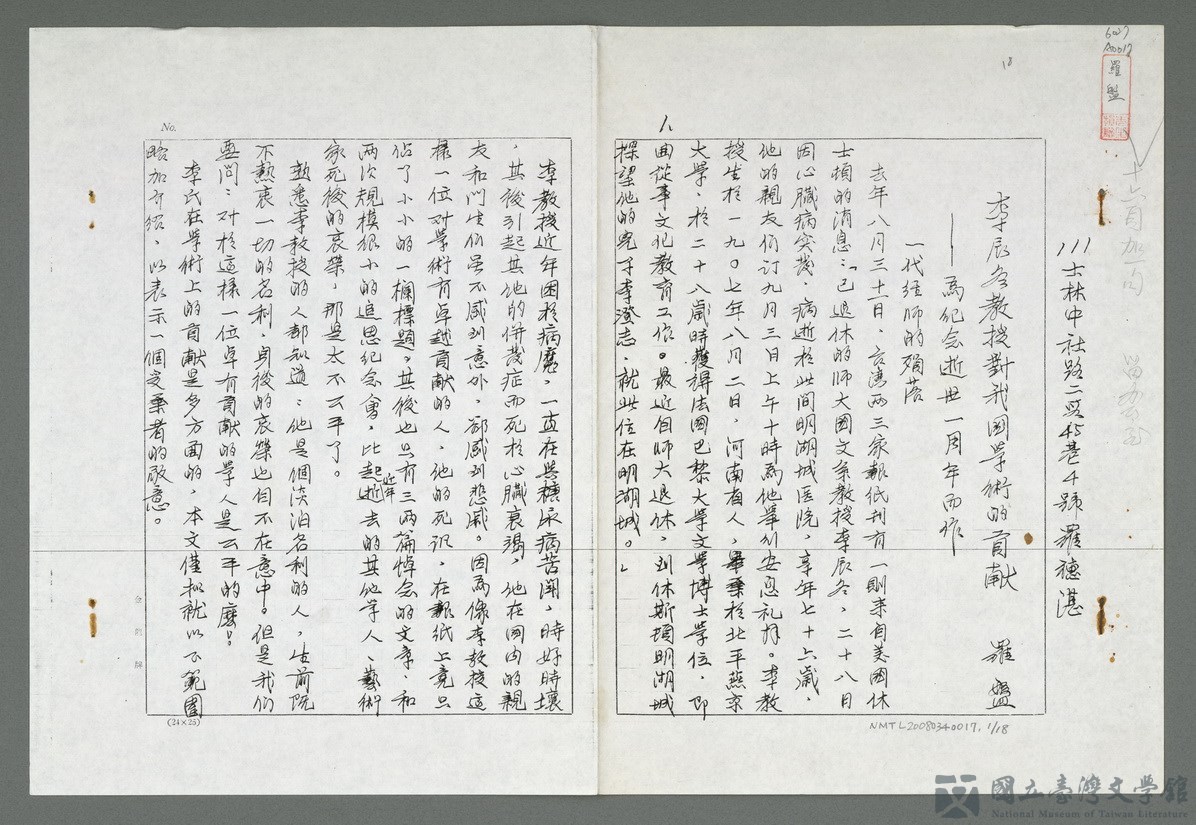 6027
A0017
羅盤
18
十六百加一句
111士林中社路二段45巷4號羅德湛
李辰冬教授對我國學術的貢献 羅盤
——為紀念逝世一周年而作
一代經師的殞落
去年八月三十一日,台灣兩三家報紙刊有一則来自美國休
士頓的消息:「已退休的師大國文系教授李辰冬,二十八日
因心臟病突發,病逝於此間明湖城医院,享年七十六歲,
他的親友们訂九月三日上午十時為他舉行安息礼拜。李教
授生於一九0七年八月二日,河南省人,畢業於北平燕京
大學,於二十八歲時獲得法國巴黎大學文學博士學位,即
由從事文化教育工作。最近自師大退休,到休斯頓明湖城
探望他的兒子李澄志,就此住在明湖城。」
李教授近年困於病魔,一直在與糖尿病苦鬥,時好時壞
,其後引起其他的併發症而死於心臟衰竭,他在國內的親
友和門生们虽不感到意外,却感到悲戚。因為像李教授這
樣一位对學術有卓越貢献的人,他的死訊,在報紙上竟只
佔了小小的一欄標題。其後也只有三兩篇悼念的文章,和
兩次規模很小的追思紀念會,比起近年逝去的其他學人、藝術
家死後的哀榮,那是太不公平了。
熟悉李教授的人都知道:他是個淡泊名利的人,生前既
不熱衷一切的名利,身後的哀榮也自不在意中。但是我们
要問:对於這樣一位卓有貢献的學人是公平的麼!。
李氏在學術上的貢献是多方面的,本文僅扣就以下範圍
略加介紹,以表示一個受業者的敬意。
No.
(24×25)
金明牌
NMTL20080340017, 1/18
國立臺灣文學館
National Museum of Taiwan Literature